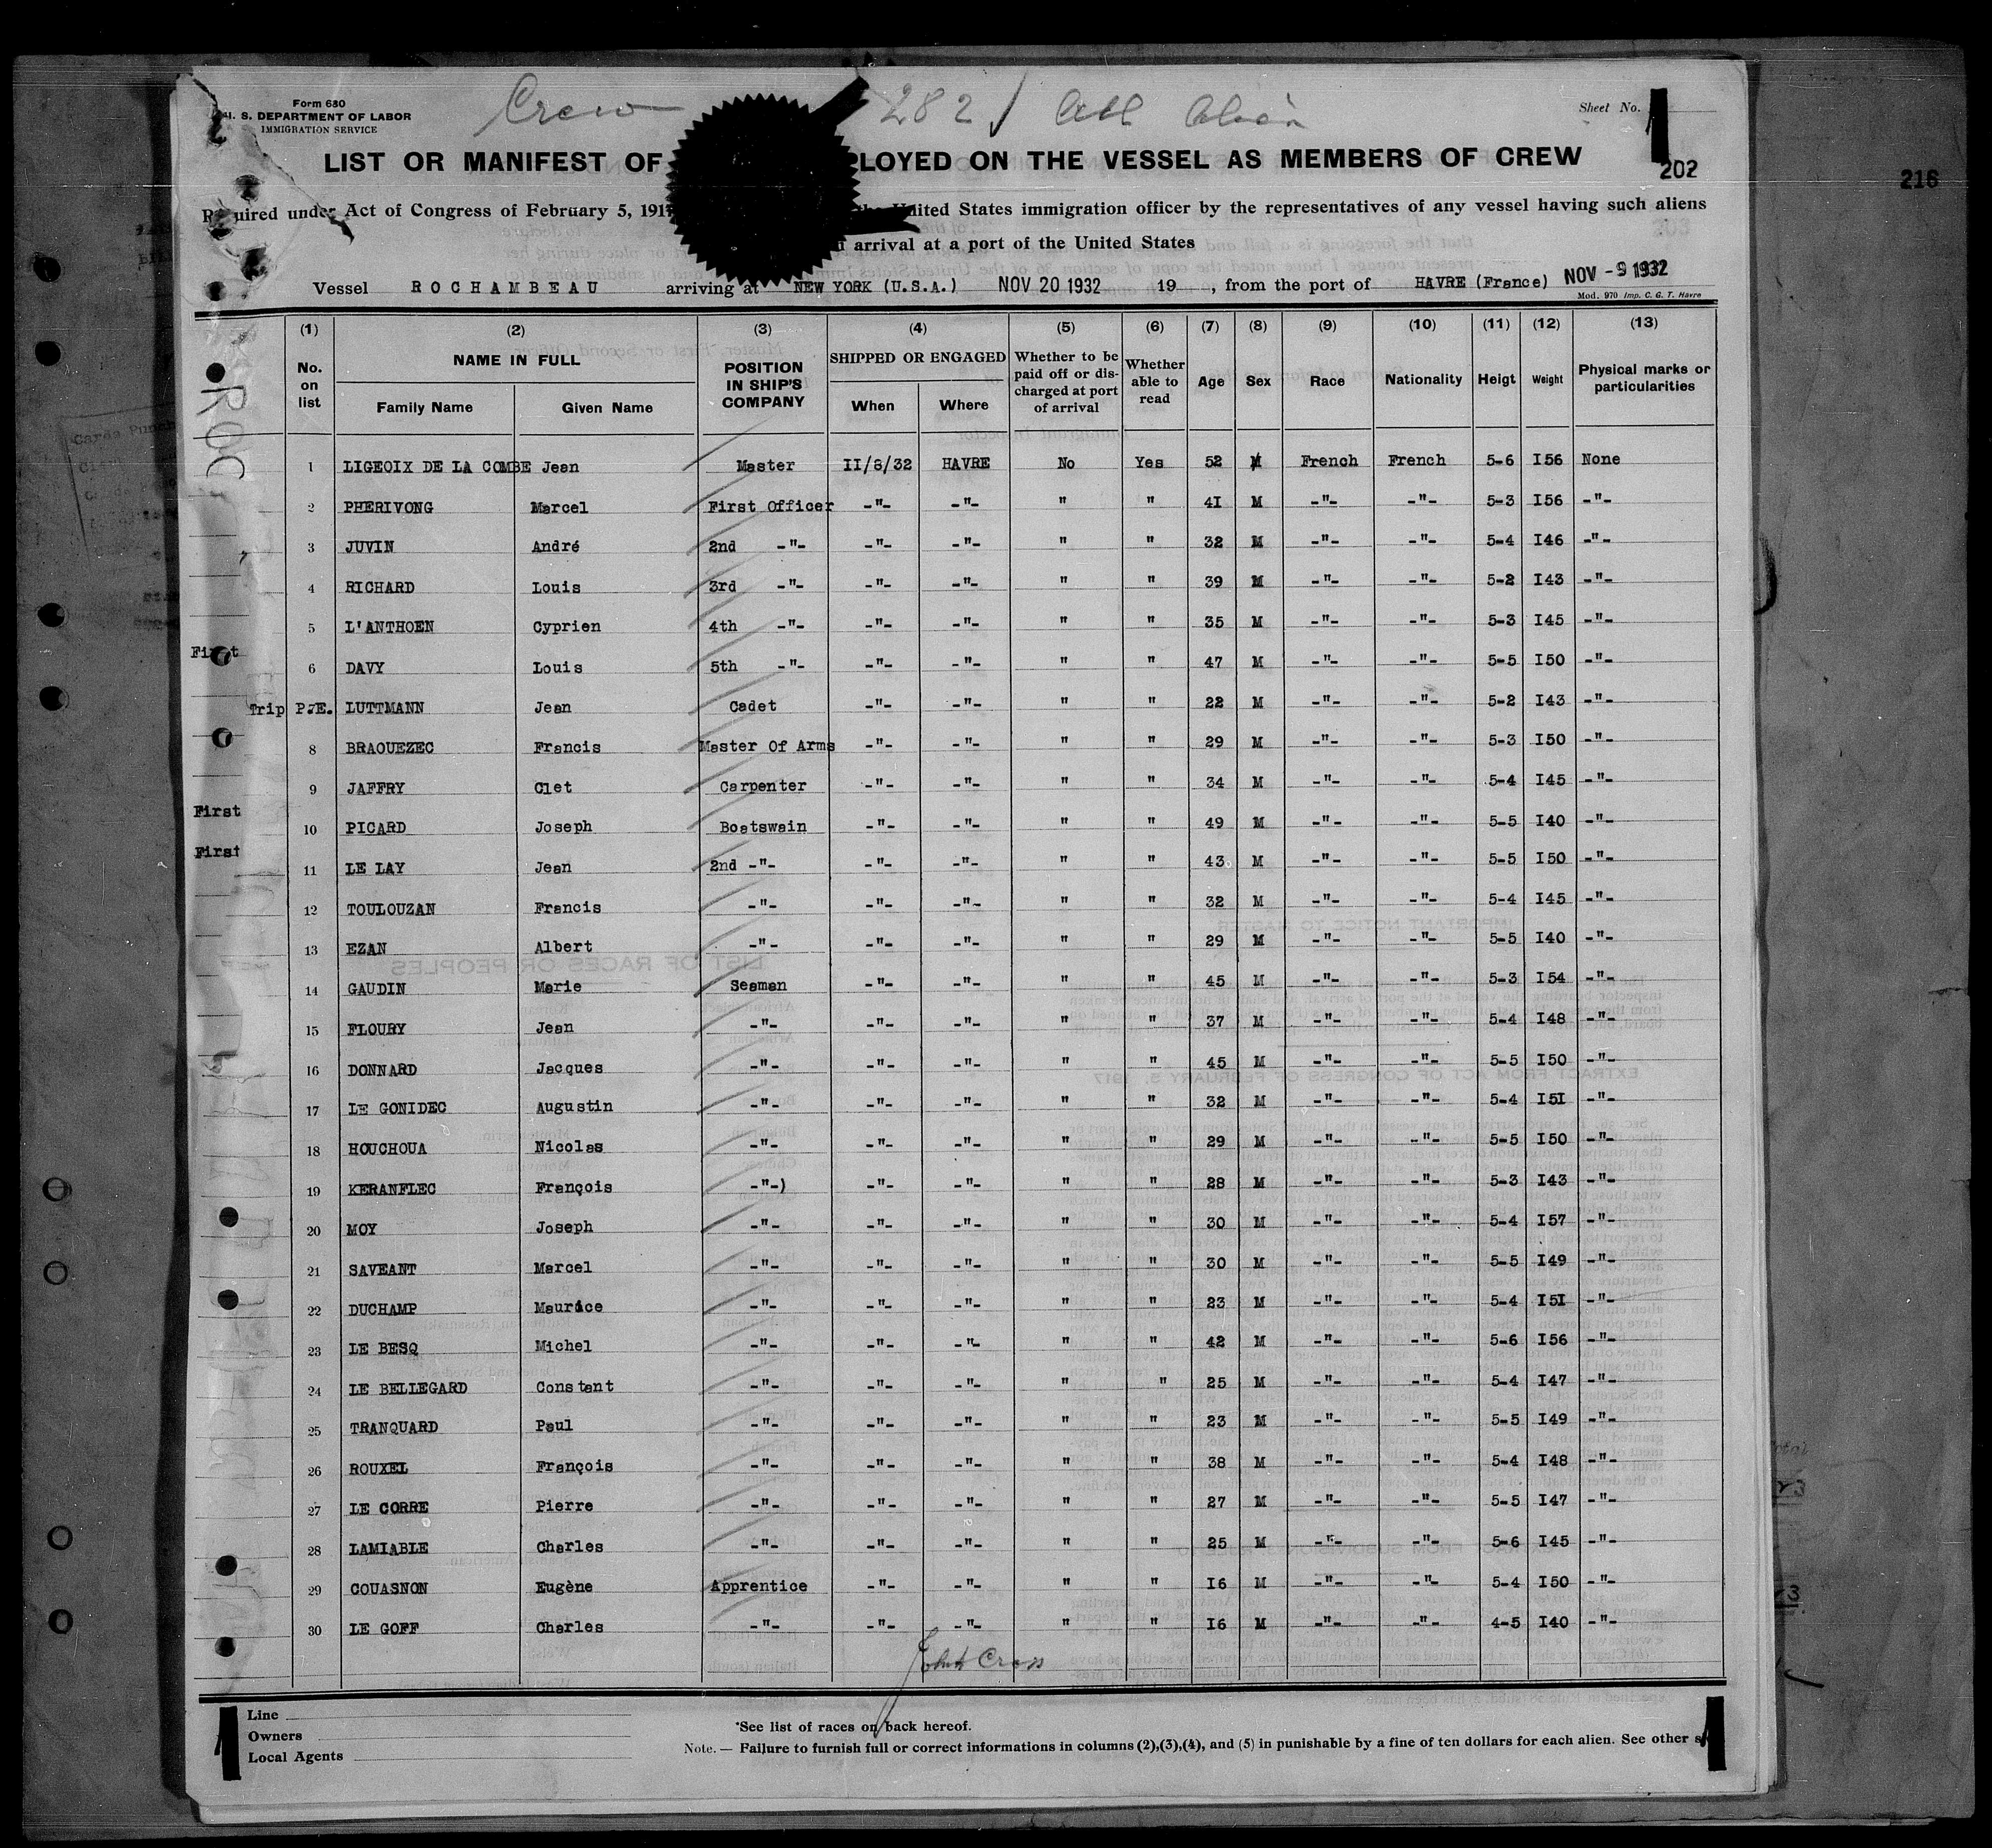 Crew 282 All Alien
Form 680
U. S. DEPARTMENT OF LABOR
IMMIGRATION SERVICE
Sheet No. 1
202
216
LIST OR MANIFEST OF PLOYED ON THE VESSEL AS MEMBERS OF CREW
Required under Act of Congress of February 5, 1917 the United States immigration officer by the representatives of any vessel having such aliens
arrival at a port of the United States
Vessel ROCHAMBEAU arriving at NEW YORK (U.S.A.) NOV 20 1932 19 , from the port of HAVRE (France) NOV -9 1932
Mod. 970 Imp. C. G. T. Havre
(1) (2) (3) (4) (5) (6) (7) (8) (9) (10) (11) (12) (13)
No. on list NAME IN FULL Family Name Given Name POSITION IN SHIP'S COMPANY SHIPPED OR ENGAGED When Where Whether to be paid off or discharged at port of arrival Whether able to read Age Sex Race Nationality Heigt Weight Physical marks or particularities
1 LIGEOIX DE LA COMBE Jean Master II/8/32 HAVRE No Yes 52 M French French 5-6 I56 None
2 PHERIVONG Marcel First Officer -"- -"- " " 41 M -"- -"- 5-3 I56 -"-
3 JUVIN André 2nd -"- -"- -"- " " 32 M -"- -"- 5-4 I46 -"-
4 RICHARD Louis 3rd -"- -"- -"- " " 39 M -"- -"- 5-2 I43 -"-
5 L'ANTHOEN Cyprien 4th -"- -"- -"- " " 35 M -"- -"- 5-3 I45 -"-
First 6 DAVY Louis 5th -"- -"- -"- " " 47 M -"- -"- 5-5 I50 -"-
Trip P.E. LUTTMANN Jean Cadet -"- -"- " " 22 M -"- -"- 5-2 I43 -"-
8 BRAOUEZEC Francis Master Of Arms -"- -"- " " 29 M -"- -"- 5-3 I50 -"-
9 JAFFRY Clet Carpenter -"- -"- " " 34 M -"- -"- 5-4 I45 -"-
First 10 PICARD Joseph Boatswain -"- -"- " " 49 M -"- -"- 5-5 I40 -"-
First 11 LE LAY Jean 2nd -"- -"- -"- " " 43 M -"- -"- 5-5 I50 -"-
12 TOULOUZAN Francis -"- -"- -"- " " 32 M -"- -"- 5-4 I45 -"-
13 EZAN Albert -"- -"- -"- " " 29 M -"- -"- 5-5 I40 -"-
14 GAUDIN Marie Seaman -"- -"- " " 45 M -"- -"- 5-3 I54 -"-
15 FLOURY Jean -"- -"- -"- " " 37 M -"- -"- 5-4 I48 -"-
16 DONNARD Jacques -"- -"- -"- " " 45 M -"- -"- 5-5 I50 -"-
17 LE GONIDEC Augustin -"- -"- -"- " " 32 M -"- -"- 5-4 I5I -"-
18 HOUCHOUA Nicolas -"- -"- -"- " " 29 M -"- -"- 5-5 I50 -"-
19 KERANFLEC François -"-) -"- -"- " " 28 M -"- -"- 5-3 I43 -"-
20 MOY Joseph -"- -"- -"- " " 30 M -"- -"- 5-4 I57 -"-
21 SAVEANT Marcel -"- -"- -"- " " 30 M -"- -"- 5-5 I49 -"-
22 DUCHAMP Maurice -"- -"- -"- " " 23 M -"- -"- 5-4 I5I -"-
23 LE BESQ Michel -"- -"- -"- " " 42 M -"- -"- 5-6 I56 -"-
24 LE BELLEGARD Constant -"- -"- -"- " " 25 M -"- -"- 5-4 I47 -"-
25 TRANQUARD Paul -"- -"- -"- " " 23 M -"- -"- 5-5 I49 -"-
26 ROUXEL François -"- -"- -"- " " 38 M -"- -"- 5-4 I48 -"-
27 LE CORRE Pierre -"- -"- -"- " " 27 M -"- -"- 5-5 I47 -"-
28 LAMIABLE Charles -"- -"- -"- " " 25 M -"- -"- 5-6 I45 -"-
29 COUASNON Eugène Apprentice -"- -"- " " I6 M -"- -"- 5-4 I50 -"-
30 LE GOFF Charles -"- -"- -"- " " I6 M -"- -"- 4-5 I40 -"-
John Cross
Line
Owners
Local Agents
*See list of races on back hereof.
Note. — Failure to furnish full or correct informations in columns (2),(3),(4), and (5) in punishable by a fine of ten dollars for each alien. See other s